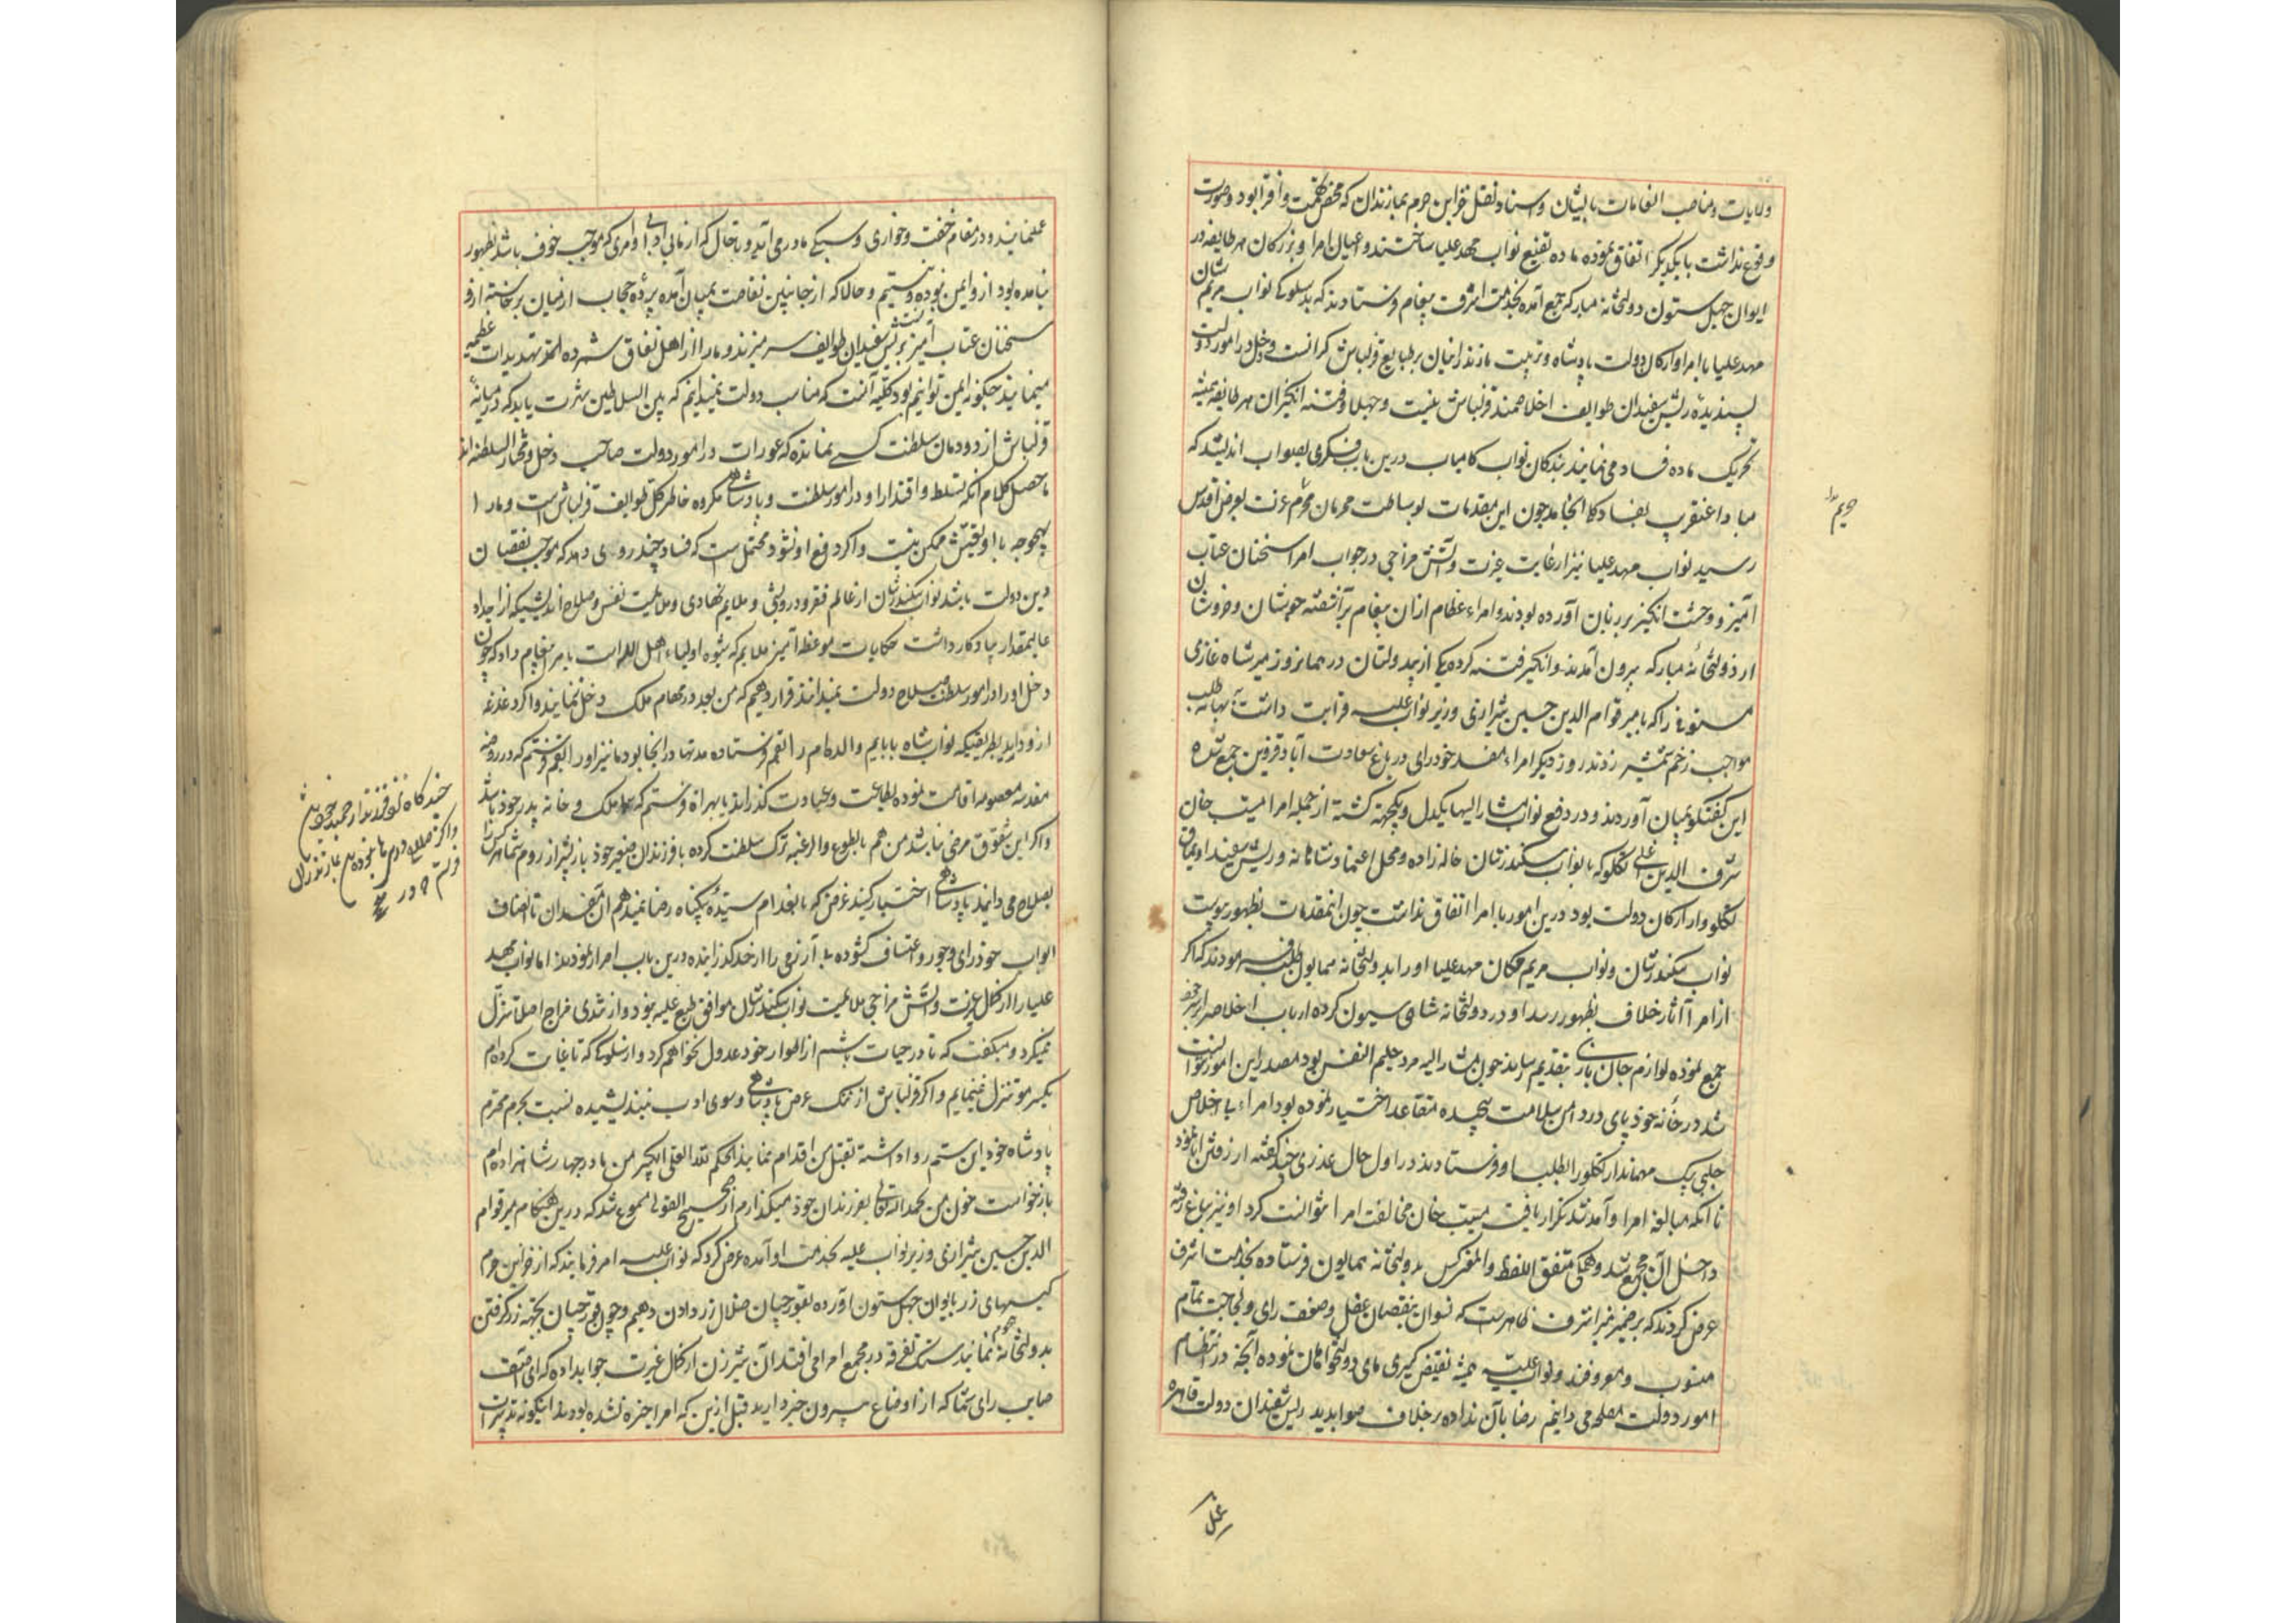 ولایات و مناصب انعامات بایشان و اسناد نقل خزاین حرم بمازندران که محض تهمت و افترا بود و صورت
وقوع نداشت با یکدیگر اتفاق نموده ماده تفنیع نواب مهد علیا ساختند و اعیان امرا و بزرگان هر طایفه در
ایوان چهل ستون دولتخانه مبارکه جمع آمده بخدمت اشرف پیغام فرستادند که بدسلوکی نواب مریم شان
مهد علیا با امرا و ارکان دولت پادشاه و تربیت مازندرانیان بر طبایع قزلباش گرانست و دخل در امور دولت
پسندیده ریش سفیدان طوایف اخلاصمند قزلباش نیست و جهلا و فتنه انگیزان هر طایفه همیشه
تحریک ماده فساد می نمایند بندگان نواب کامیاب درین باب فکری بصواب اندیشد که
مبادا عنقریب بفساد کلی انجامد چون این مقدمات بوساطت محرمان محرم عزت بعرض اقدس
رسید نواب مهد علیا نیز از غایت غیرت و آتش مزاجی در جواب امرا سخنان عتاب
آمیز و وحشت انگیز بر زبان آورده بودند و امراء عظام ازان پیغام برآشفته جوشان و خروشان
از دولتخانه مبارکه بیرون آمدند و انگیز فتنه کرده یکی از بیدولتان در همانروز میرشاه غازی
مستوفی را که با میر قوام الدین حسین شیرازی وزیر نواب علیه قرابت داشت ببهانه طلب
مواجب زخم شمشیر زدند روز دیگر امراء مفسد خودرای در باغ سعادت آباد قزوین جمع شده
این گفتگو بمیان آوردند و در دفع نواب مشار الیها یکدل و یکجهت گشته از جمله امرا مسیب خان
شرف الدین اغلی تکلو که با نواب سکندرشان خاله زاده و محل اعتماد و ریش سفید اویماق
تکلو و از ارکان دولت بود درین امور با امرا اتفاق نداشت چون این مقدمات بظهور پیوست
نواب سکندرشان و نواب مریم مکان مهد علیا او را بدولتخانه همایون طلب فرمودند که اگر
از امرا آثار خلاف بظهور رسد او در دولتخانه شاهی سیون کرده ارباب اخلاص را بر سر خود
جمع نموده لوازم جان سپاری بتقدیم رساند چون مشار الیه مرد حلیم النفس بود مصدر این امور نتوانست
شد در خانه خود پای در دامن سلامت پیچیده تقاعد اختیار نموده بود امراء با اخلاص
چلبی بیک مهماندار تکلو را بطلب او فرستادند در اول حال عذری چند گفته از رفتن ابا نمود
تا آنکه مبالغه امرا و آمد شد تکرار یافت مسیب خان مخالفت امرا نتوانست کرد او نیز بباغ رفته
داخل آن مجمع شد و همگی متفق اللفظ والمعنی کس بدولتخانه همایون فرستاده بخدمت اشرف
عرض کردند که بر ضمیر منیر اشرف ظاهرست که نسوان بنقصان عقل و ضعف رای و لجاجت تمام
منسوب و معروفند و نواب علیه همیشه نقیض گیری های دولتخواهان نموده آنچه در انتظام
امور دولت مصلح می دانیم رضا بآن نداده بر خلاف صوابدید ریش سفیدان دولت قاهره
حریم
عمل
عملمی نمایند و در مقام خفت و خواری و سبکی ما در می آید و تا حال که از ما بی ادبی و امری که موجب خوف باشد بظهور
نیامده بود ازو ایمن نبوده و نیستیم و حالا که از جانبین نقاضت بمیان آمده پرده حجاب از میان برخاسته ازو
سخنان عتاب آمیز نسبت بریش سفیدان طوایف سر میزند و ما را از اهل نفاق شمرده تهدیدات عظیمه
مینمایند چگونه ایمن توانیم بود کلیه آنست که مناسب دولت نمیدانیم که بین السلاطین شهرت یابد که در میانه
قزلباش از دودمان سلطنت کسی نمانده که عورات در امور دولت صاحب دخل و مختار السلطنه اند
ماحصل کلام آنکه تسلط و اقتدار او در امور سلطنت و پادشاهی مکروه خاطر کل طوایف قزلباش است و ما را
بهیچوجه با او تعیش ممکن نیست و اگر دفع او نشود محتمل است که فساد چند روی دهد که موجب نقصان
دین و دولت باشد نواب سکندرشان از عالم فقر و درویشی و ملایم نهادی و ملایمت نفس و صلاح اندیشی که از اجداد
عالیمقدار بیادگار داشت حکایات موعظه آمیز ملایم که شیوه اولیاء اهل الله است بامرا پیغام داد که چون
دخل او را در امور سلطنت صلاح دولت نمیدانند قرار دهیم که من بعد در مهام ملک دخل ننماید و اگر دغدغه
ازو دارید بطریقی که نواب شاه بابایم والده ام را بقم فرستاده مدتها در آنجا بود ما نیز او را بقم فرستیم که در روضه
مقدسه معصومه اقامت نموده بطاعت و عبادت گذراند یا بهراة فرستیم که ملک و خانه پدر خود باشد
و اگر این شقوق مرضی نباشد من هم بالطوع والرغبه ترک سلطنت کرده با فرزندان صغیر خود بازبشیراز روم شما هر کس را
بصلاح می دانید بپادشاهی اختیار کنید غرض که باعدام سیده بیگناه رضا نمیدهم آن مفسدان نا انصاف
ابواب خودرای و جور و اعتساف گشوده آزرمی را از حد گذرانیده درین باب اصرار نمودند اما نواب مهد
علیا را از کمال غیرت و آتش مزاجی ملایمت نواب سکندرشان موافق طبع علیه نبود و از تندی مزاج اصلا تنزل
نمیکرد و میگفت که تا در حیات باشم از اطوار خود عدول نخواهم کرد و از سلوکی که تا غایت کرده ام
یکسر مو تنزل نمینمایم و اگر قزلباش از ننک عرض پادشاهی و سوی ادب نیندیشیده نسبت بحرم محترم
پادشاه خود این ستم روا داشته بقتل من اقدام نمایند الحکم لله العلی الکبیر من مادر چهار شاهزاده ام
بازخواست خون من بحمد الله تعالی بفرزندان خود میگذارم از صحیح القولی مسموع شد که درین هنگام میر قوام
الدین حسین شیرازی وزیر نواب علیه بخدمت او آمده عرض کرد که نواب علیه امر فرمایند که از خزاین حرم
کیسهای زر بایوان چهل ستون آورده بقورچیان صلال زر دادن دهیم و چون قورچیان بجهة زر گرفتن
بدولتخانه هجوم نمایند سنک تفرقه در مجمع امرا می افتد آن شیر زن از کمال غیرت جواب داده که ای احمق
صایب رای شما که از اوضاع بیرون خبر دارید قبل ازین که امرا خیره نشده بودند اینگونه تدبیرات
چند گاه نیز فرزند ارجمند خود باشد
و اگر صلاح درین هم نبوده باشد بمازندران
فرستم که در